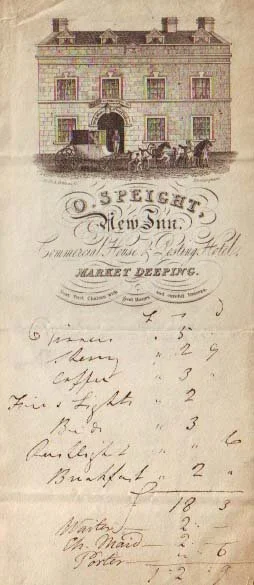 O. SPEIGHT,
New Inn.
Commercial House & Posting Hotel,
MARKET DEEPING.
Neat Post Chaises with good Horses and careful Drivers.
Dinners " 5 "
Sherry " 2 9
Coffee " 3 "
Fire & Lights " 2
Beds " 3
Rushlight " " 6
Breakfast " 2 "
18 3
Waiter 2 -
Ch. Maid 2 -
Porter - " 6
1 . 2 . 9